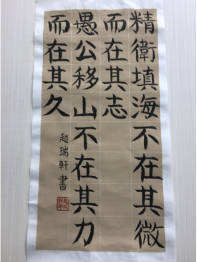 精衛填海不在其微
而在其志
愚公移山不在其力
而在其久
趙瑞軒書